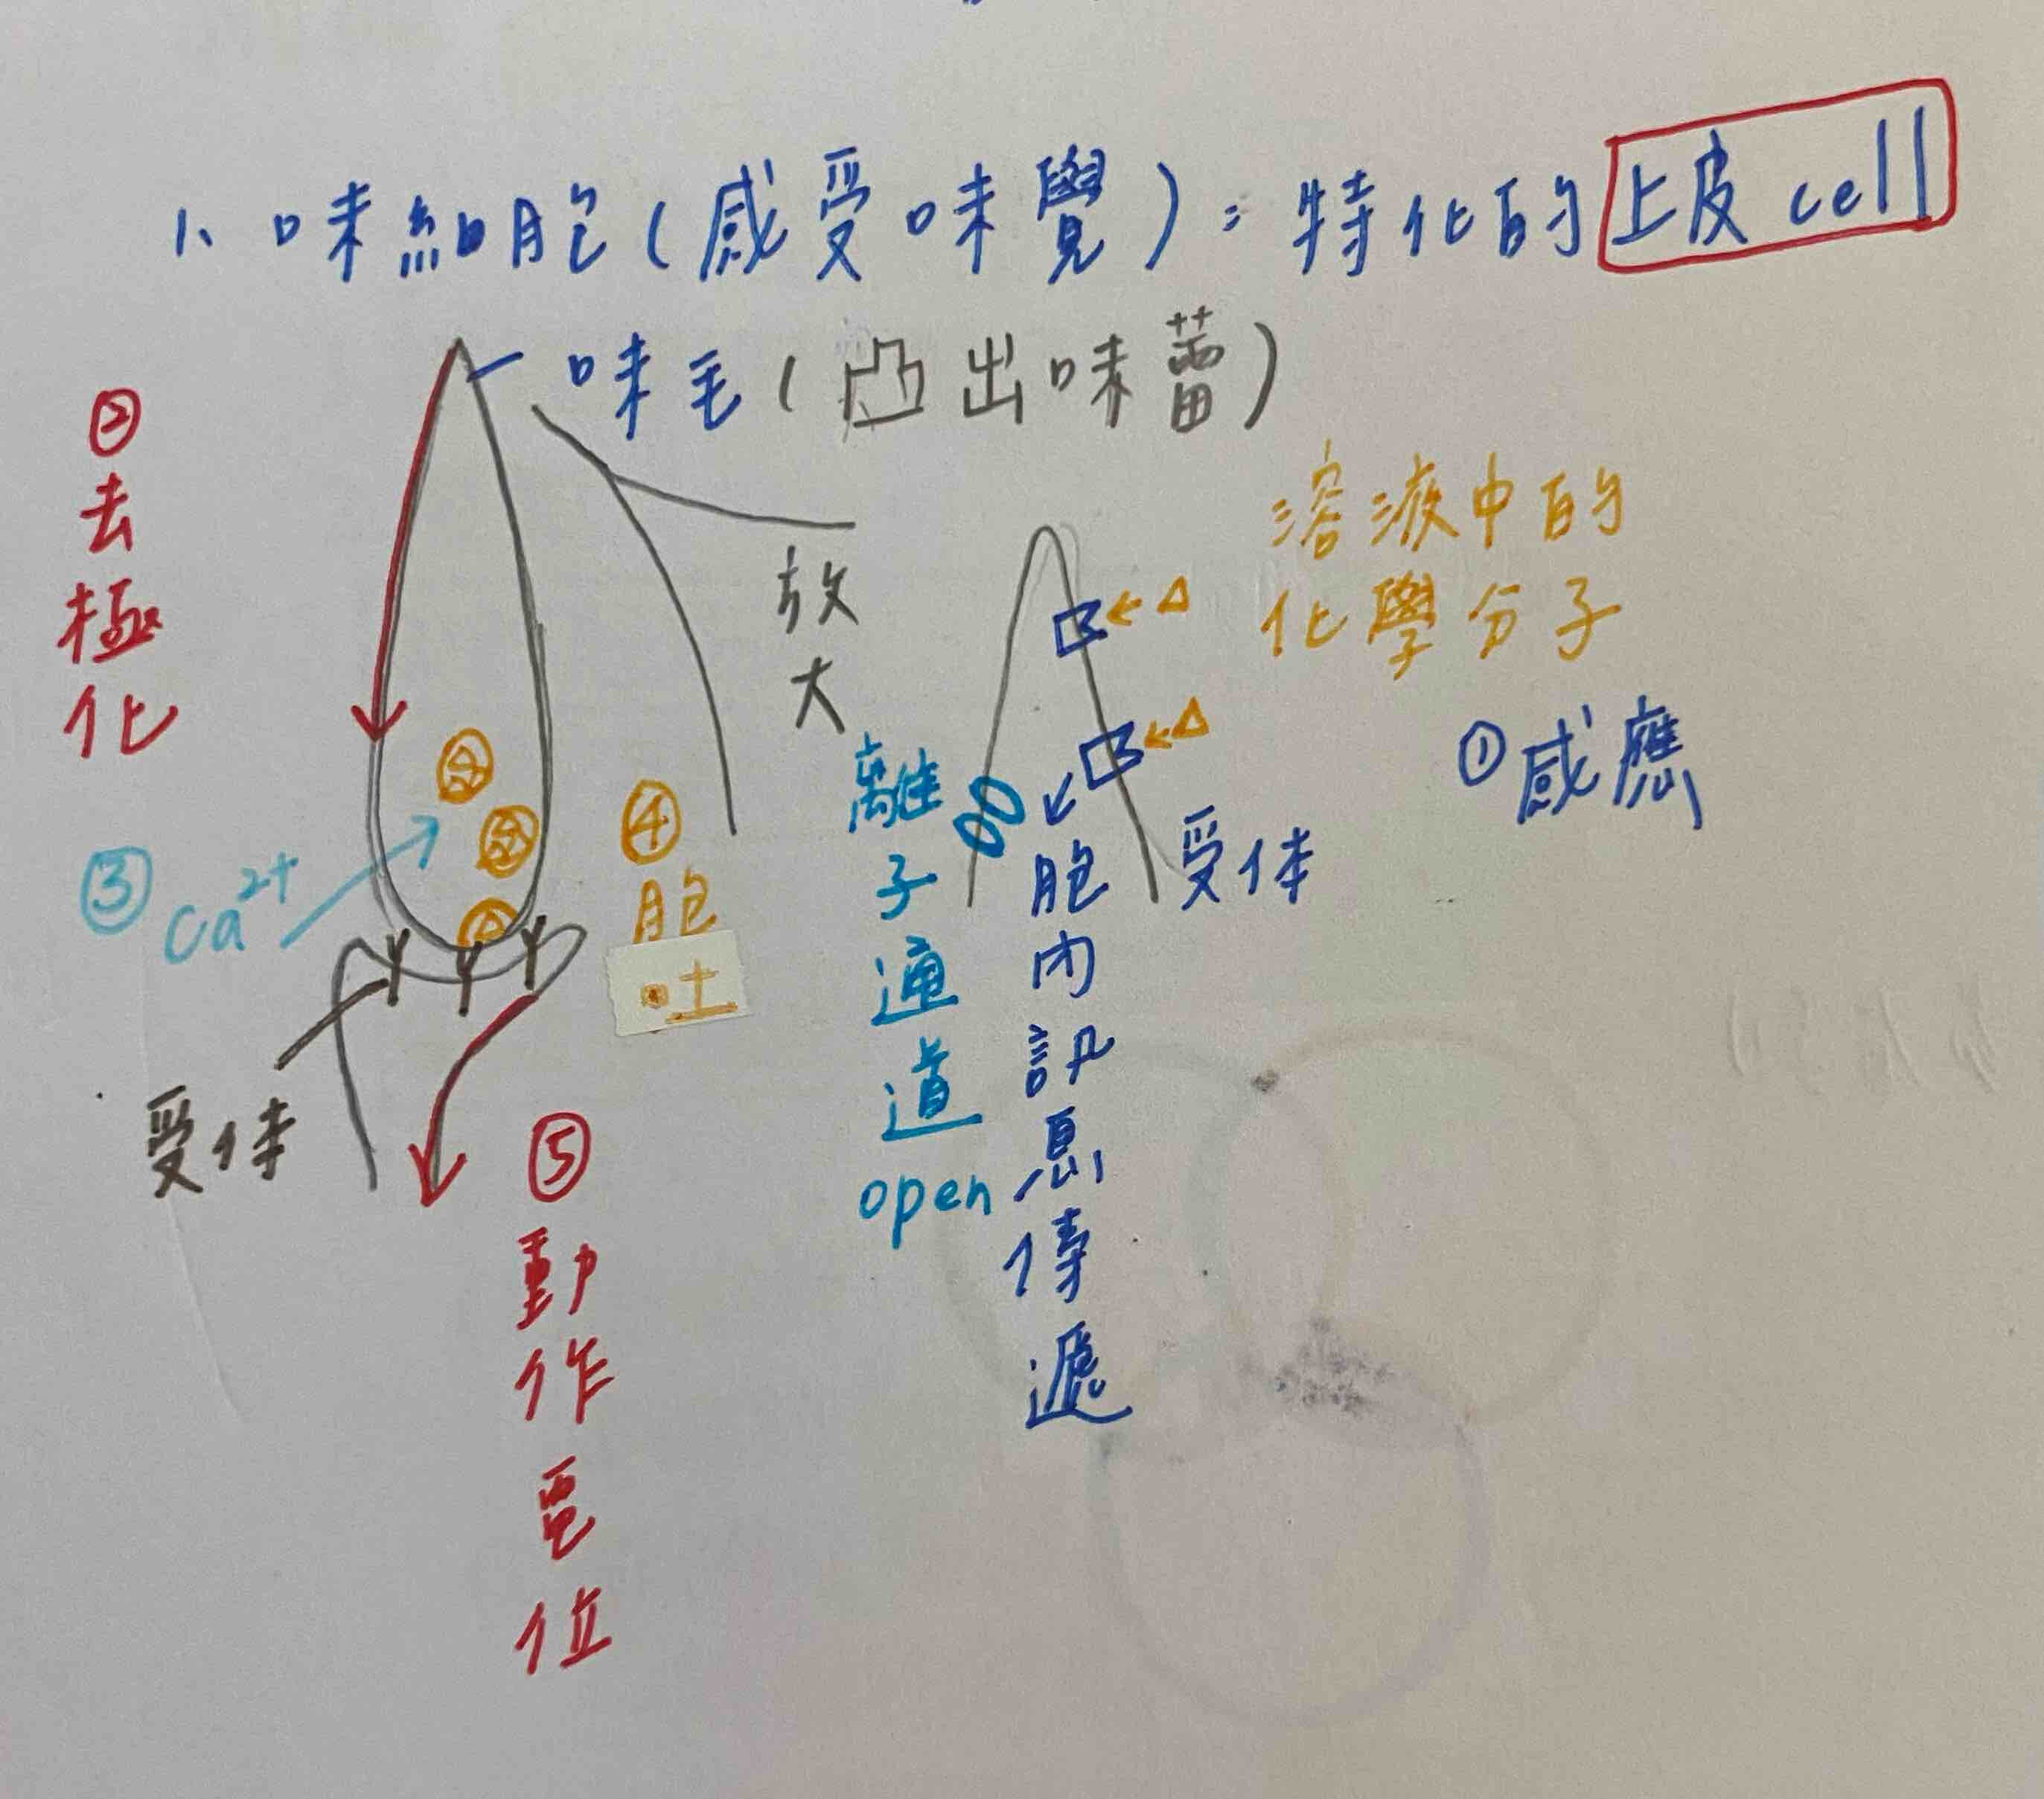 1、味細胞(感受味覺):特化的上皮 cell
味毛(凸出味蕾)
②去極化
放大
溶液中的
化學分子
①感應
③Ca²⁺
④胞吐
離子通道open
胞內訊息傳遞
受体
受体
⑤動作電位